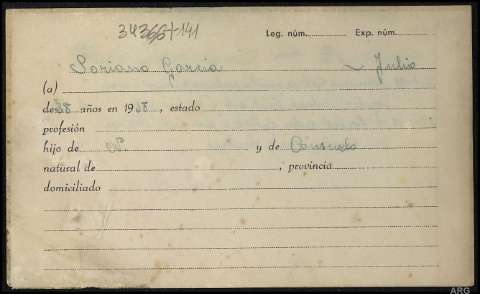 34366+141
Leg. núm. Exp. núm.
Soriano Garcia Julio
(a)
de 28 años en 1938, estado
profesión
hijo de y de Consuelo
natural de , provincia
domiciliado
ARG